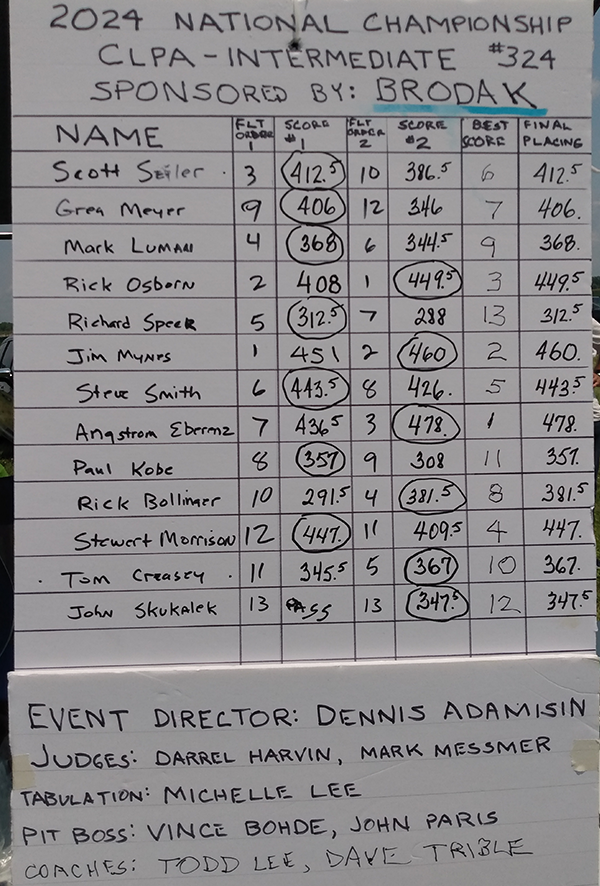 2024 NATIONAL CHAMPIONSHIP
CLPA - INTERMEDIATE #324
SPONSORED BY: BRODAK
NAME FLT ORDER 1 SCORE #1 FLT ORDER 2 SCORE #2 BEST SCORE FINAL PLACING
Scott Seiler 3 412.5 10 386.5 6 412.5
Greg Meyer 9 406 12 346 7 406.
Mark Luman 4 368 6 344.5 9 368.
Rick Osborn 2 408 1 449.5 3 449.5
Richard Speek 5 312.5 7 288 13 312.5
Jim Mynes 1 451 2 460 2 460.
Steve Smith 6 443.5 8 426. 5 443.5
Angstrom Ebernz 7 436.5 3 478. 1 478.
Paul Kobe 8 357 9 308 11 357.
Rick Bollinger 10 291.5 4 381.5 8 381.5
Stewert Morrison 12 447. 11 409.5 4 447.
Tom Creasey 11 345.5 5 367 10 367.
John Skukalek 13 PASS 13 347.5 12 347.5
EVENT DIRECTOR: DENNIS ADAMISIN
JUDGES: DARREL HARVIN, MARK MESSMER
TABULATION: MICHELLE LEE
PIT BOSS: VINCE BOHDE, JOHN PARIS
COACHES: TODD LEE, DAVE TRIBLE